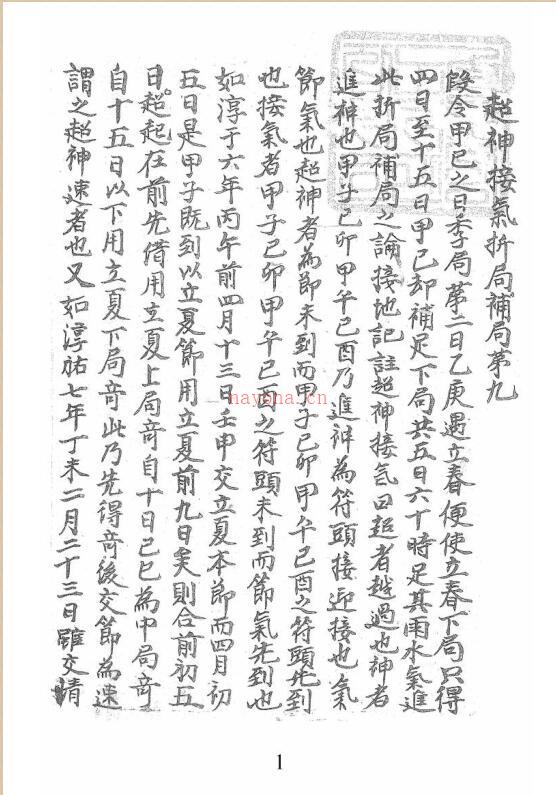 超神接氣折局補局第九
叚令甲己之日季局第二日乙庚遇立春便使立春下局只得
四日至十五日甲己却補足下局共五日六十時足其雨水氣進
此折局補局之論接地記註超神接氣曰超者越過也神者
進神也甲子己卯甲午己酉乃進神為符頭接迎接也氣
節氣也超神者為節未到而甲子己卯甲午己酉之符頭先到
也接氣者甲子己卯甲午己酉之符頭未到而節氣先到也
如淳于六年丙午前四月十三日壬申交立夏本節而四月初
五日是甲子既到以立夏節用立夏前九日矣則合前初五
日超起在前先借用立夏上局竒自十日己巳為中局竒
自十五日以下用立夏下局竒此乃先得竒後交節為速
謂之超神速者也又如淳祐七年丁未二月二十三日雖交清
nayona.cn
1